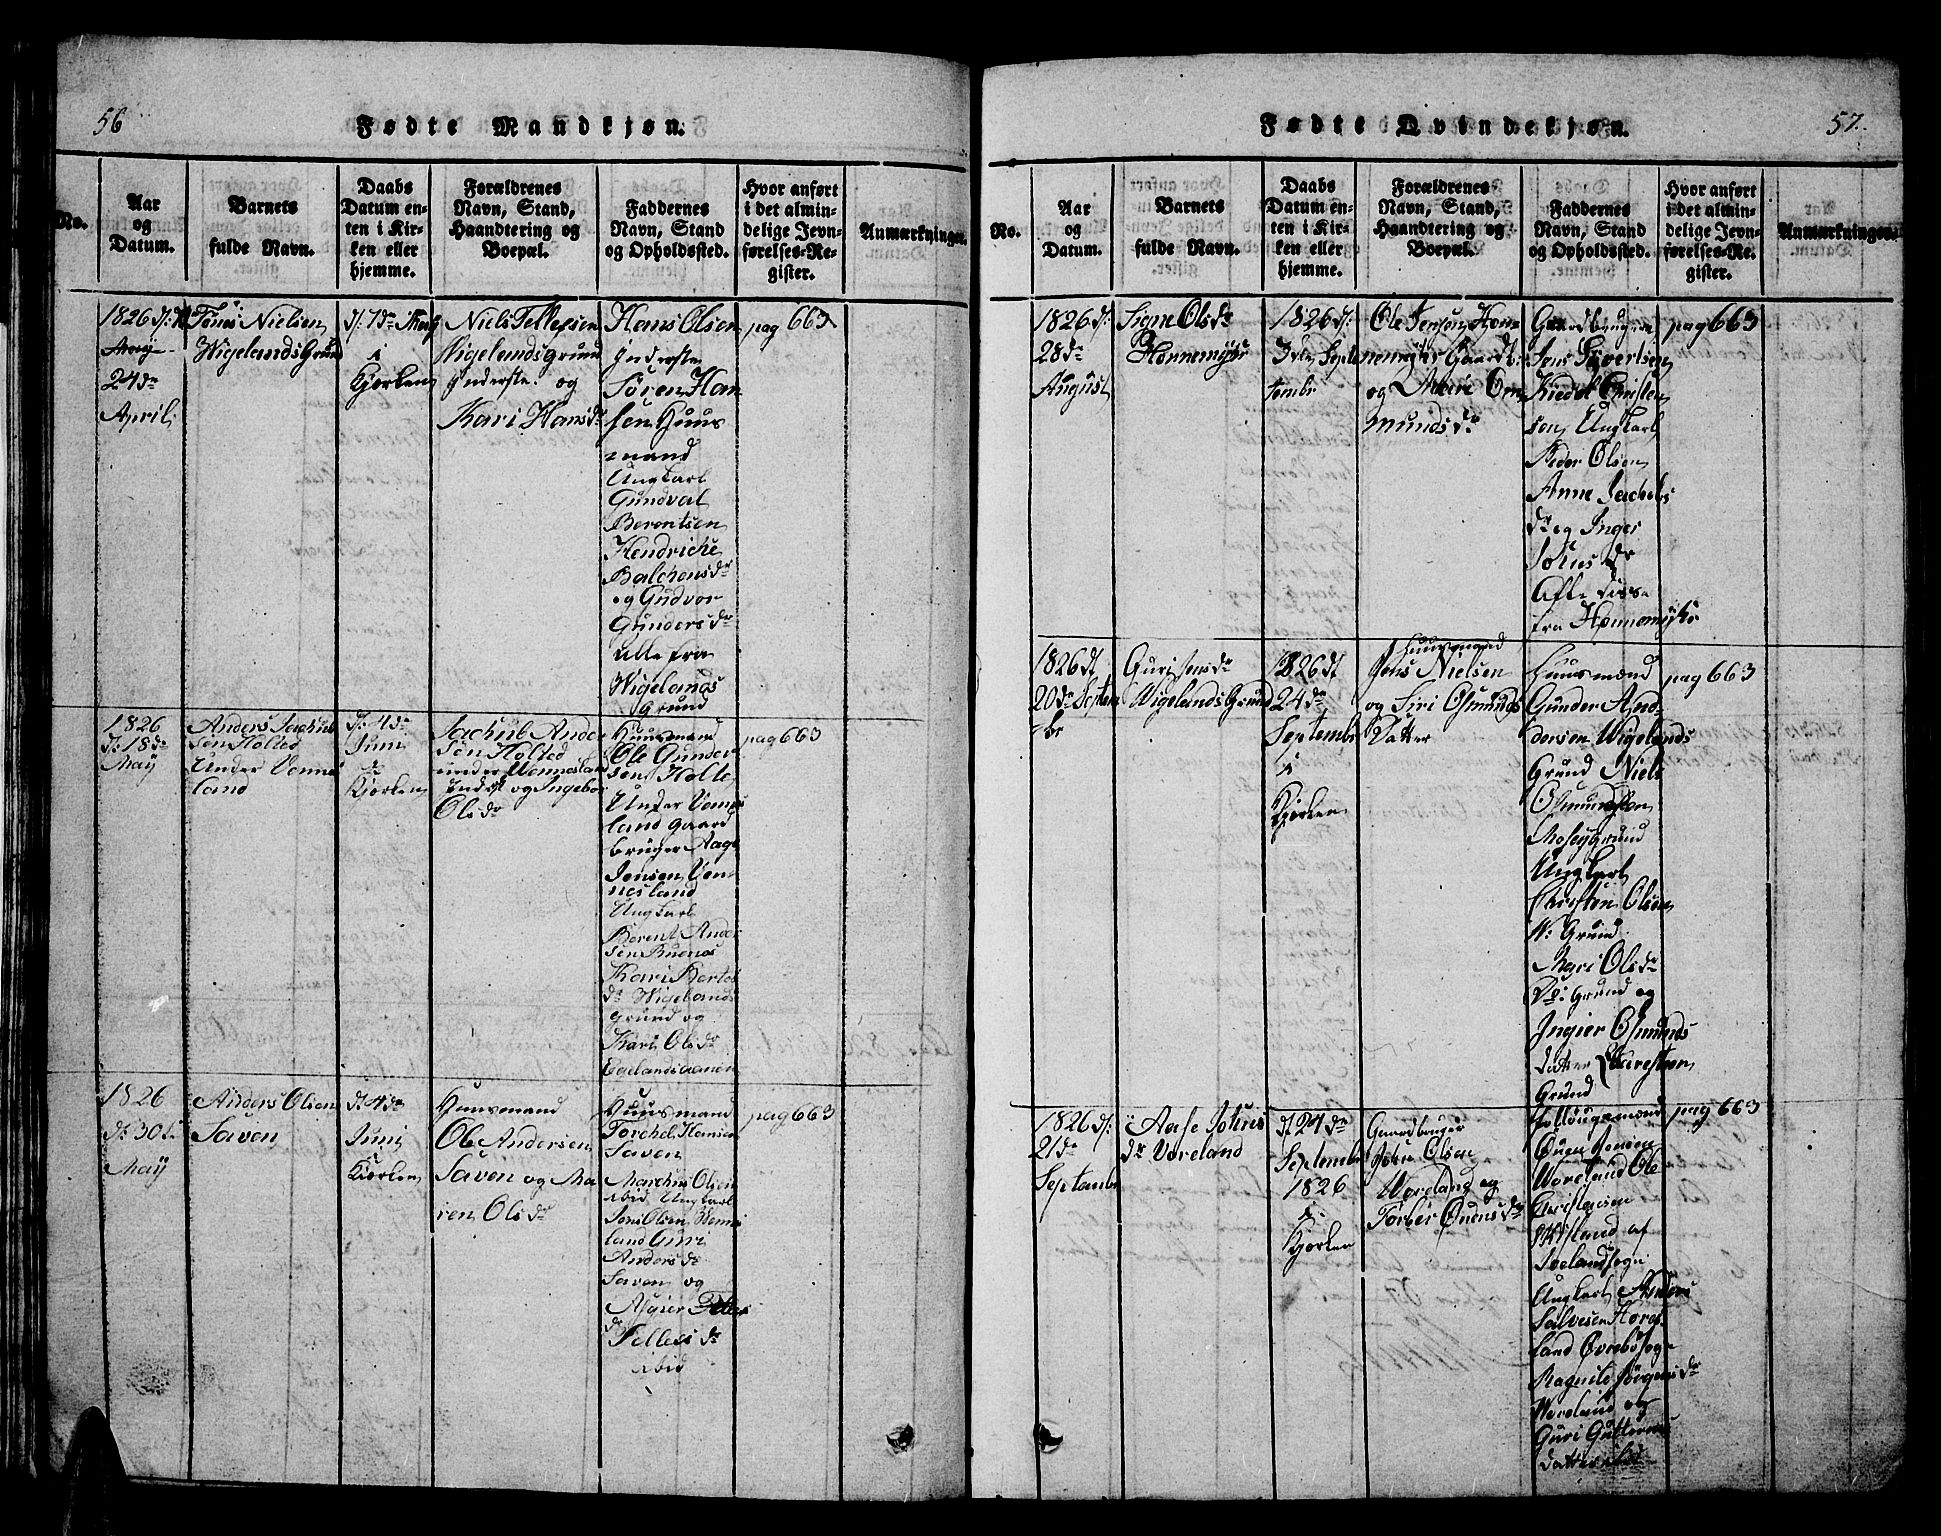 56
Fødte Mandkjøn.
No.
Aar
og
Datum.
Barnets
fulde Navn.
Daabs
Datum en-
ten i Kir-
ken eller
hjemme.
Forældrenes
Navn, Stand,
Haandtering og
Boepæl.
Faddernes
Navn, Stand
og Opholdssted.
Hvor anført
i det almin-
delige Jevn-
førelses-Re-
gister.
Anmærkninger.
1826
May
24de
April
Tønes Nielsen
Wigelands Grund
d: 7de May
i
Kjørken
Niels Tellefsen
Wigelandsgrund
Inderste. og
Kari Hansdr
Hans Olsen
Inderste
Søren Han
sen Huus
mand
Ungkarl
Gundval
Berentsen
Hendriche
Balchensdr
og Gudvor
Gundersdr
alle fra
Wigelands
Grund
pag 663
1826
d: 18de
May
Anders Jachub
sen Holted
Under Venne
land
d: 4de
Juni
Kjørken
Jachub Ander
sen Holted
under Wennesland
Inderst og Ingebor
Olsdr
Huusmand
Ole Gunder
sen Holte
Under Vennes
land gaard
bruger Aage
Jensen Ven
nesland
Ungkarl
Berent Ander
sen Buenes
Kari Bertes
dr Wigelands
grund og
Kari Olsdr
Egelandsaanen
pag 663
1826
d: 30te
May
Anders Olsen
Saven
d: 4de
Juni
i
Kjørken
Huusmand
Ole Andersen
Saven og Ma
rien Olsdr
Huusmand
Torchel Hansen
Saven
Marchus Olsen
ibid Ungkarl
Jens Olsen Wenne
land Guri
Andersdr
Saven og
Asgier
Tellefsdr
ibid
pag 663
57.
Fødte Qvindekjøn.
No.
Aar
og
Datum.
Barnets
fulde Navn.
Daabs
Datum en-
ten i Kir-
ken eller
hjemme.
Forældrenes
Navn, Stand,
Haandtering og
Boepæl.
Faddernes
Navn, Stand
og Opholdssted.
Hvor anført
i det almin-
delige Jevn-
førelses-Re-
gister.
Anmærkninger.
1826 d:
28de
August
Signe Olsdr
Honnemyhr
1826 d:
3de Sept
tembr
Ole Jensen Hon
nemyhr Gaardbr:
og Marie Om
mundsdr
Gaardbrugere
Jens Sivertsen
Kiedel Christen
sen, Ungkarl
Peder Olsen
Anne Jachobs
dr og Inger
dr
Alle disse
fra Honnemyhr
pag 663
1826 d
20de Septem
br
Guri Jensdr
Wigelands Grund
1826 d
24de
Septembr
i
Kjørken
Huusmand
Jens Nielsen
og Siri Osmunds
Datter
Huusmænd
Gunder And
dersen Wigelands
Grund Niels
Osmundsen
Moseygrund
Ungkarl
Christen Olsen
W: Grund
Mari Olsdr
Do: Grund og
Ingier Osmunds
datter
Grund
pag 663
1826 d:
21de
Septembr
Aase Johns
dr Voreland
d: 24de
Septembr
1826
i
Kjørken
Gaardbruger
John Olsen
Woreland og
Torber Ouensdr
Ouen Jensen
Woreland Ole
Christensen
af
Ungkarl Anders
Salvesen Hores
land Øvrebøsogn
Ragnild Jörgensdr
Woreland og
Guri Guttorms
datter ibid
pag 663